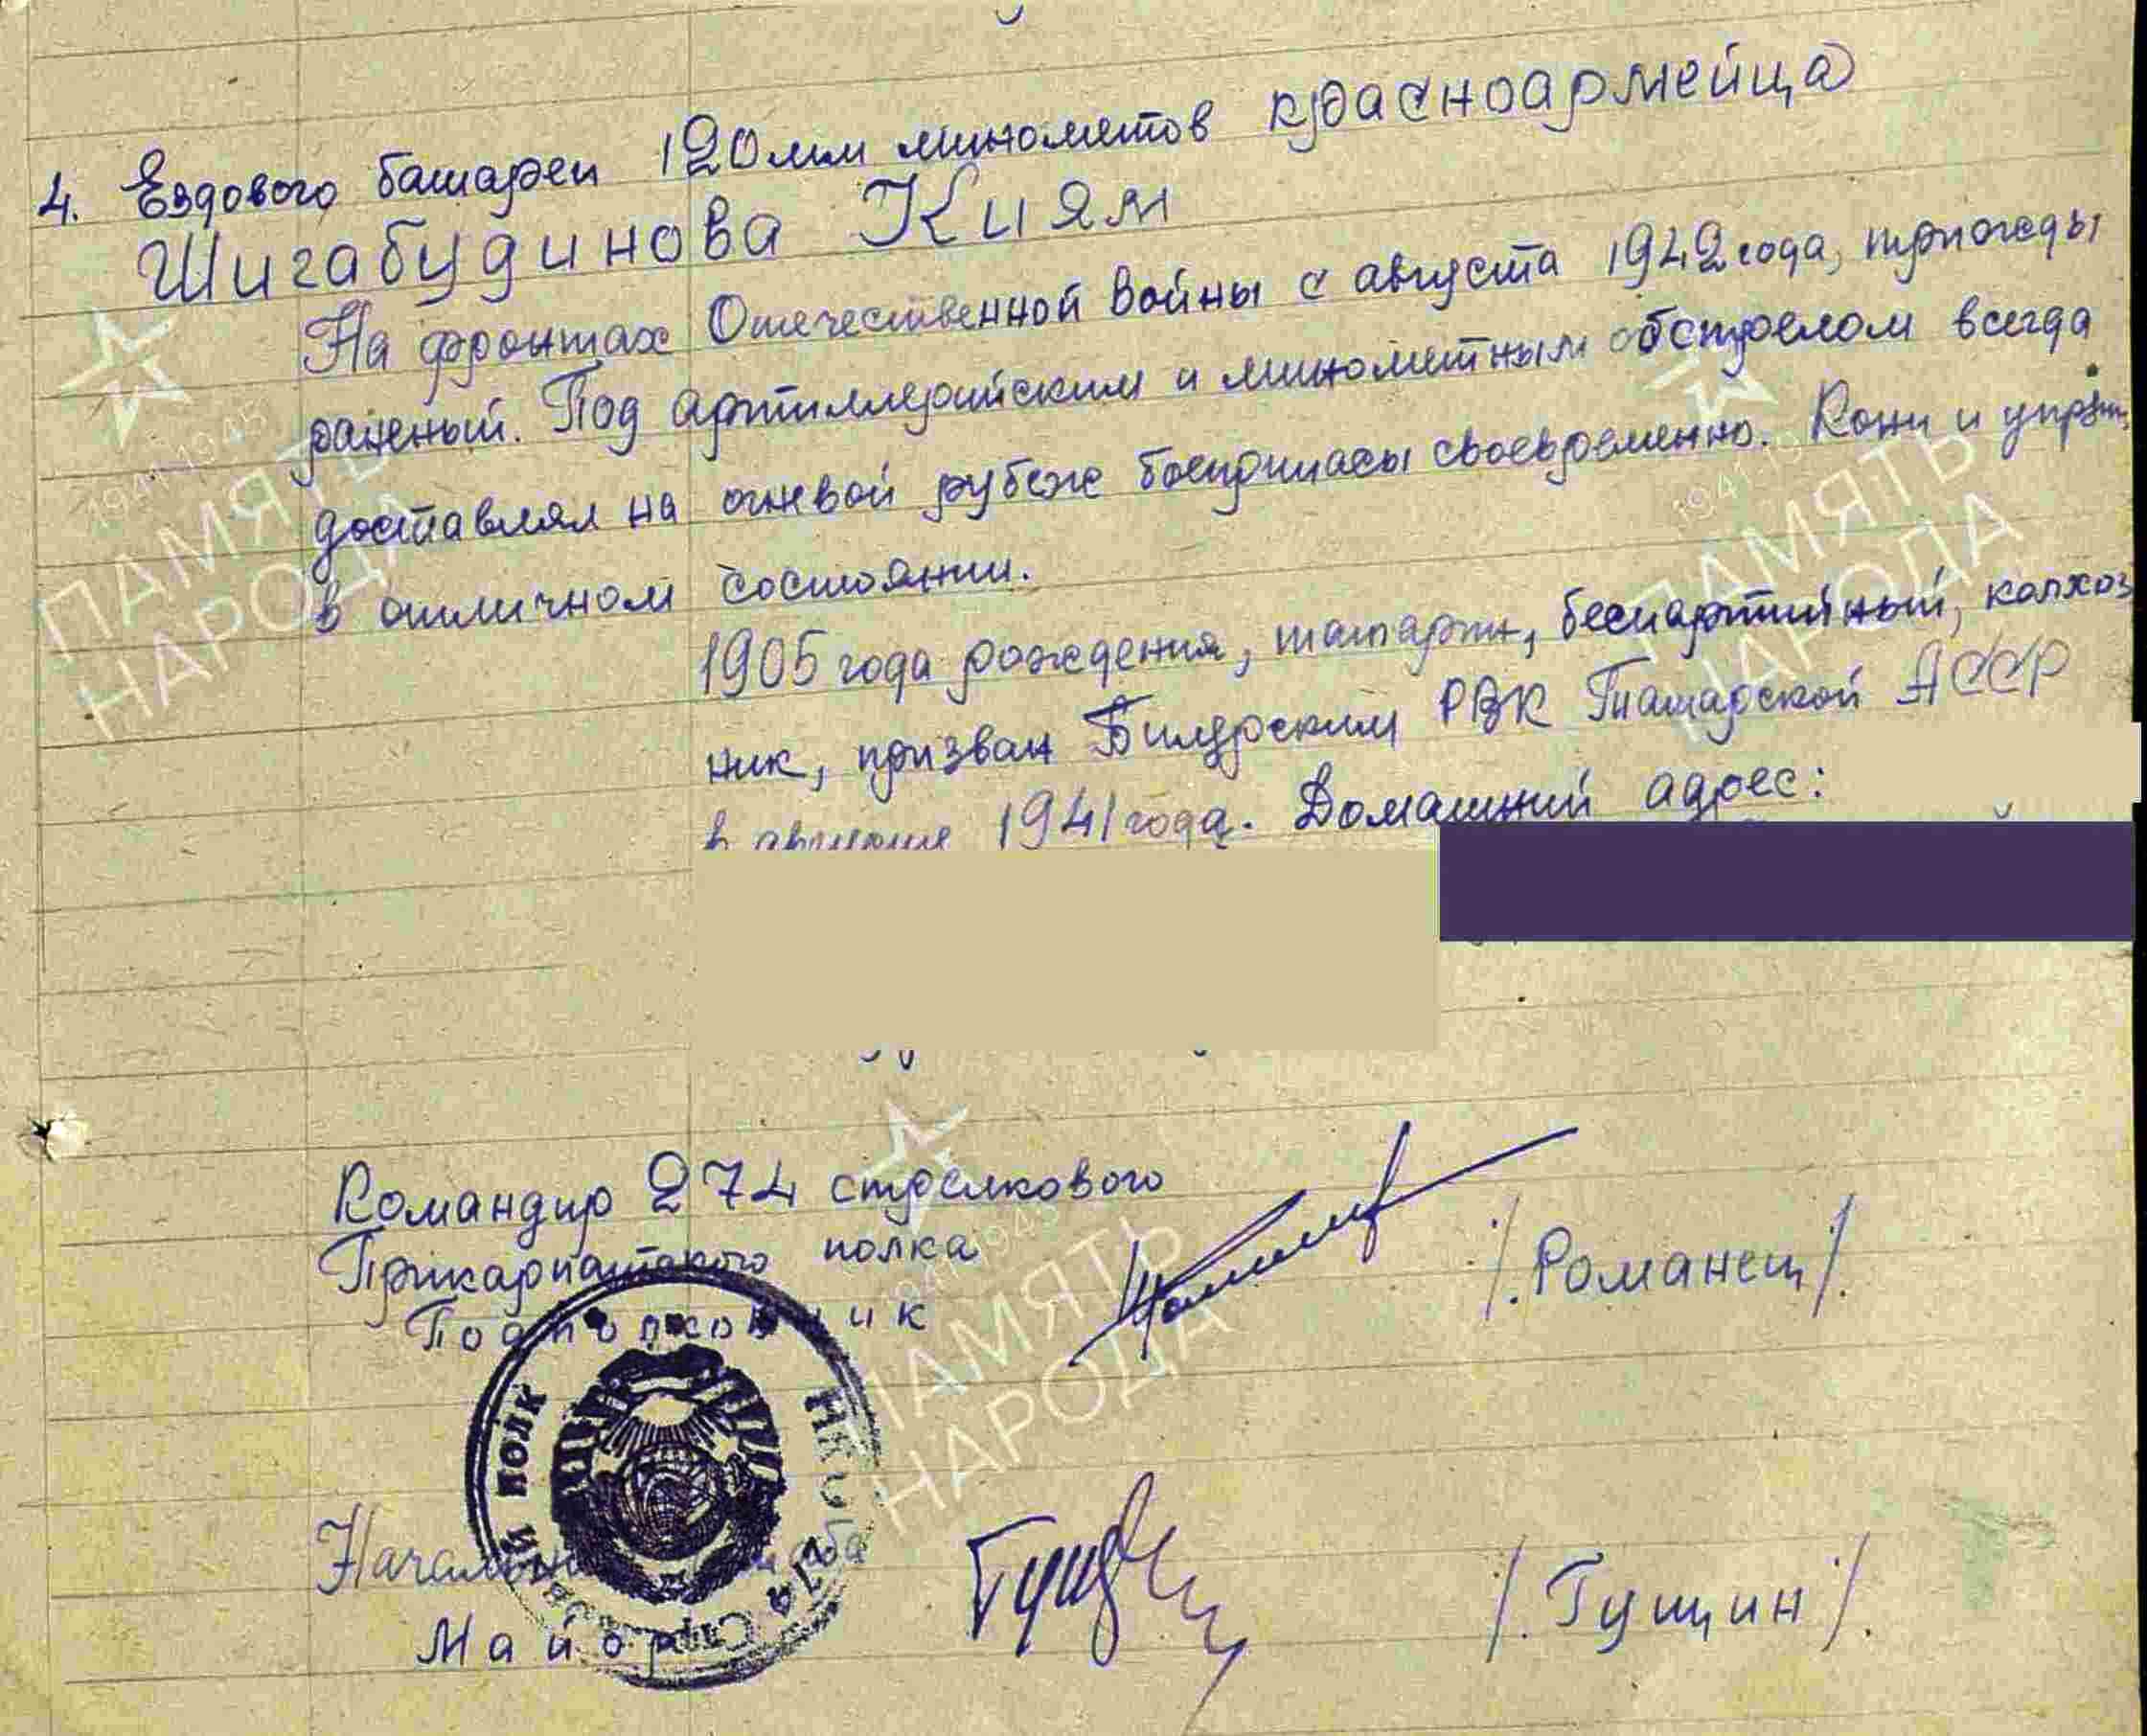 4. Ездового батареи 120 мм минометов красноармейца
Шигабудинова Киям
На фронтах Отечественной войны с августа 1942 года, трижды
раненый. Под артиллерийским и минометным обстрелом всегда
доставлял на огневой рубеж боеприпасы своевременно. Кони и
в отличном состоянии.
1905 года рождения, татарин, беспартийный, колхоз
ник, призван Билярским РВК Татарской АССР
в августе 1941 года. Домашний адрес:
Командир 274 стрелкового
Прикарпатского полка
Подполковник /.Романец/.
Начальник штаба
Майор /.Гущин/.
ПОЛК
НКО
274
1941-1945
ПАМЯТЬ
НАРОДА
1941-1945
ПАМЯТЬ
НАРОДА
1941-1945
ПАМЯТЬ
НАРОДА